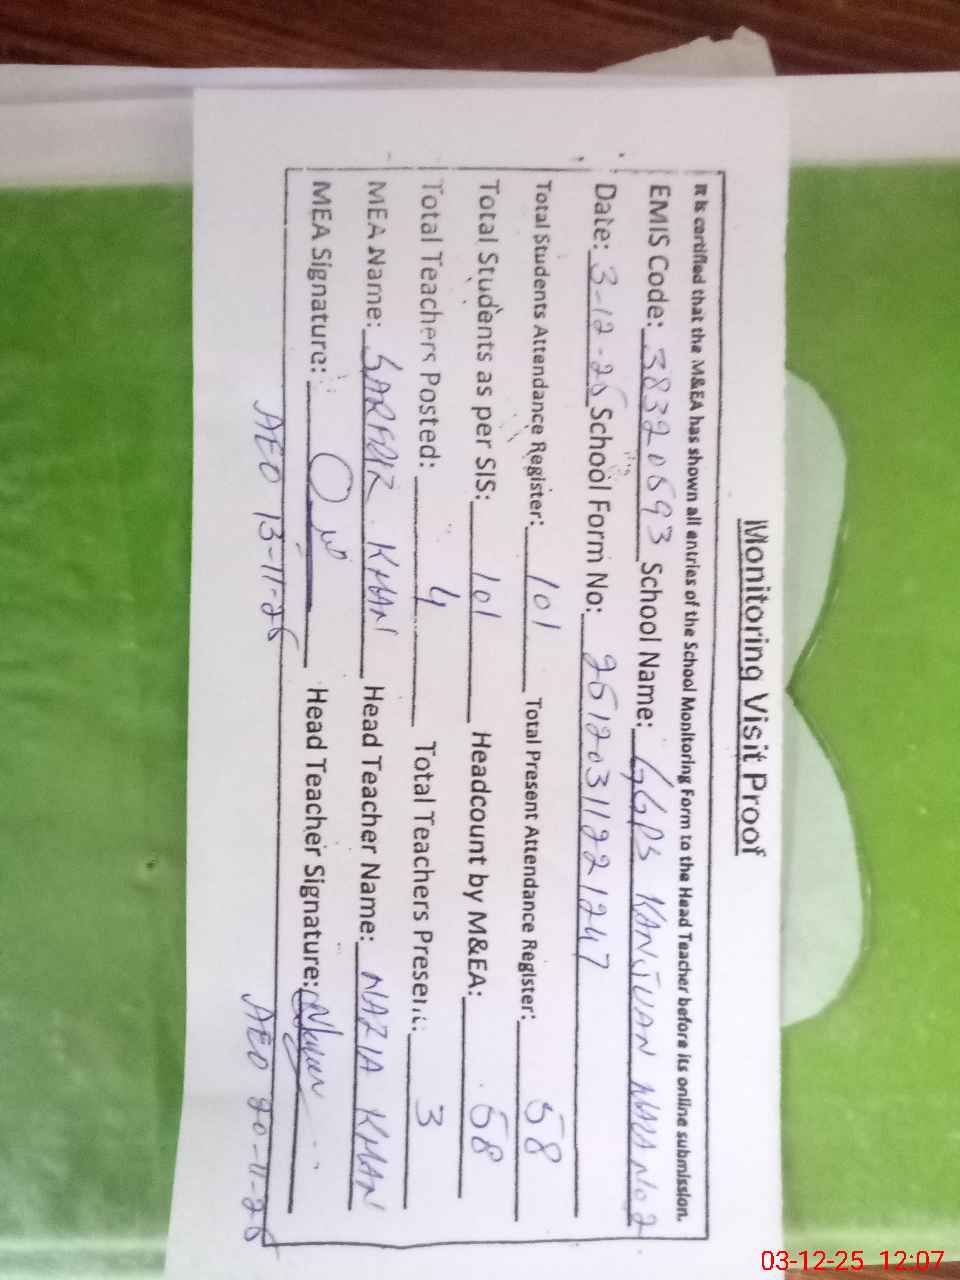 Monitoring Visit Proof
It is certified that the M&EA has shown all entries of the School Monitoring Form to the Head Teacher before its online submission.
EMIS Code: 38320593 School Name: GGPS KANJUAN WALA No.2
Date: 3-12-25 School Form No: 25120311221247
Total Students Attendance Register: 101 Total Present Attendance Register: 58
Total Students as per SIS: 101 Headcount by M&EA: 58
Total Teachers Posted: 4 Total Teachers Present: 3
MEA Name: SARFRAZ KHAN Head Teacher Name: NAZIA KHAN
MEA Signature: Head Teacher Signature:
AEO 13-11-25 AEO 20-11-25
03-12-25 12:07